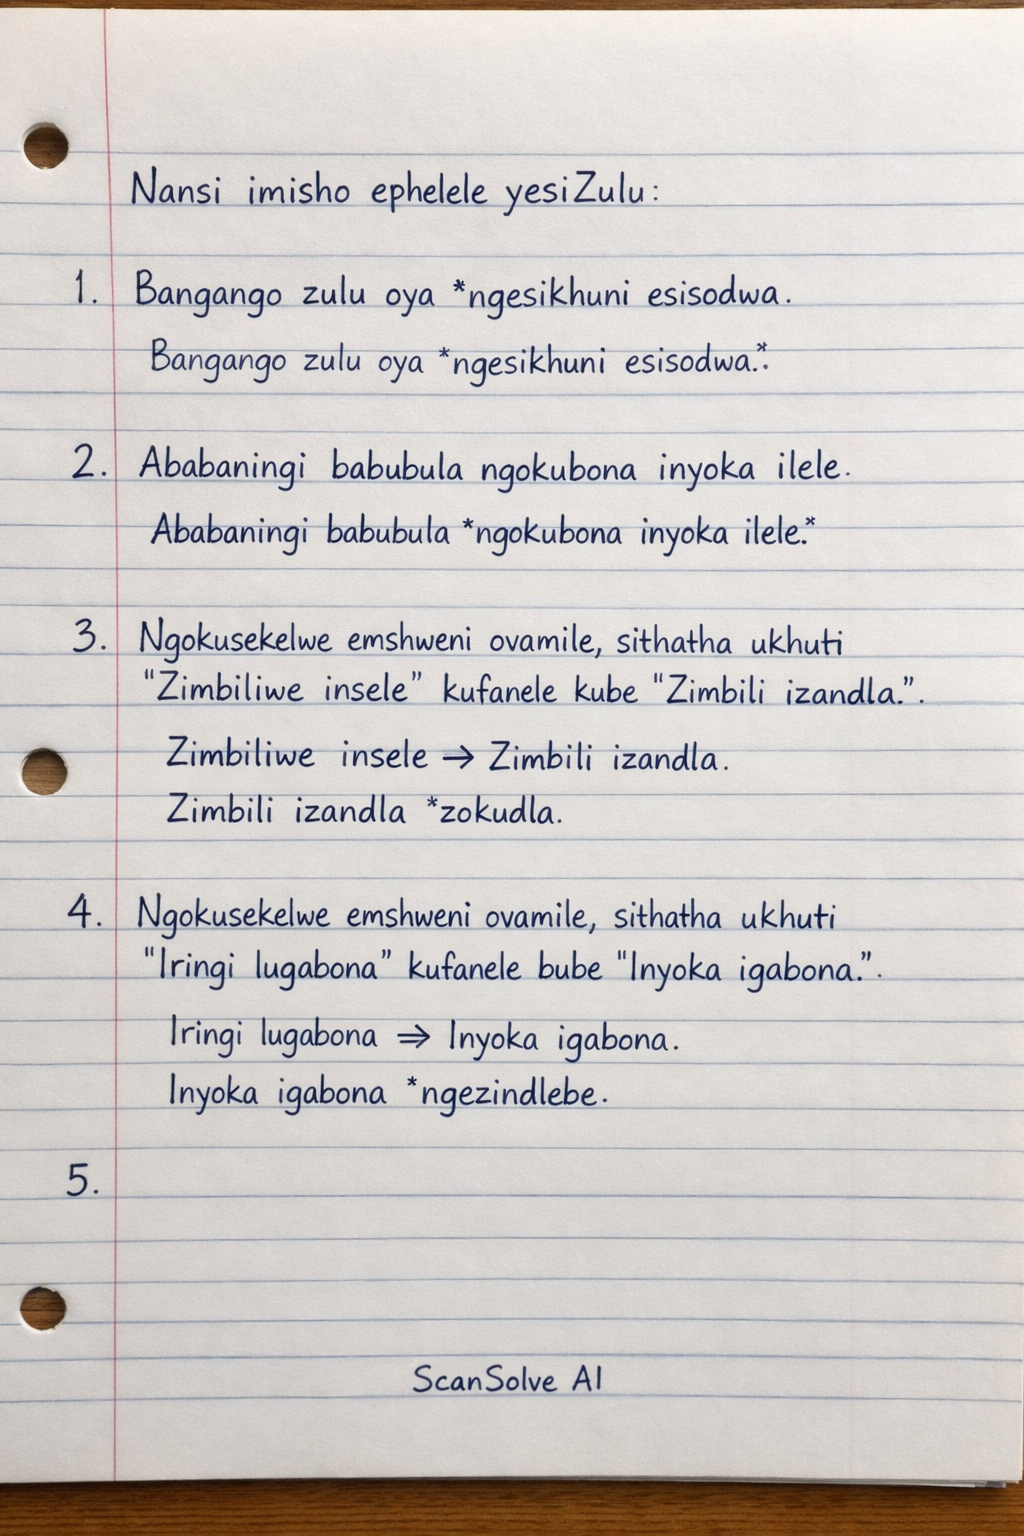 Nansi imisho ephelele yesiZulu:
1. Bangango zulu oya *ngesikhuni esisodwa.
Bangango zulu oya *ngesikhuni esisodwa.*.
2. Ababaningi babubula ngokubona inyoka ilele.
Ababaningi babubula *ngokubona inyoka ilele.*
3. Ngokusekelwe emshweni ovamile, sithatha ukhuti
"Zimbiliwe insele" kufanele kube "Zimbili izandla.".
Zimbiliwe insele → Zimbili izandla.
Zimbili izandla *zokudla.
4. Ngokusekelwe emshweni ovamile, sithatha ukhuti
"Iringi lugabona" kufanele bube "Inyoka igabona.".
Iringi lugabona ⇒ Inyoka igabona.
Inyoka igabona *ngezindlebe.
5.
ScanSolve AI